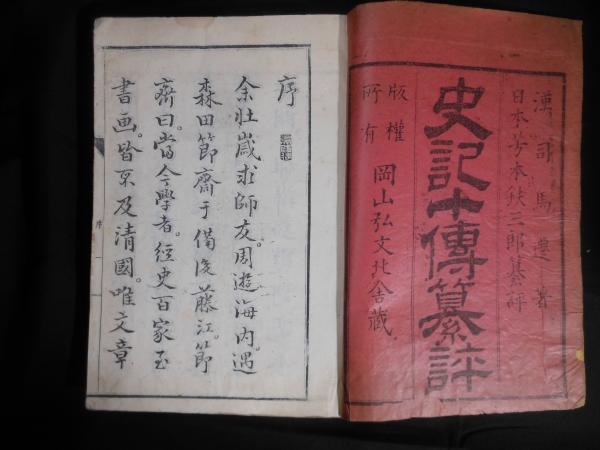 漢 司馬遷 著
日本 芳本鉄三郎纂評
史記十傳纂評
版權所有
岡山弘文北舎藏
序
余壮歳求師友。周遊海内。遇
森田節齋于備後藤江。節
齋曰。當今學者。經史百家至
書画。皆不及清國。唯文章
序
一